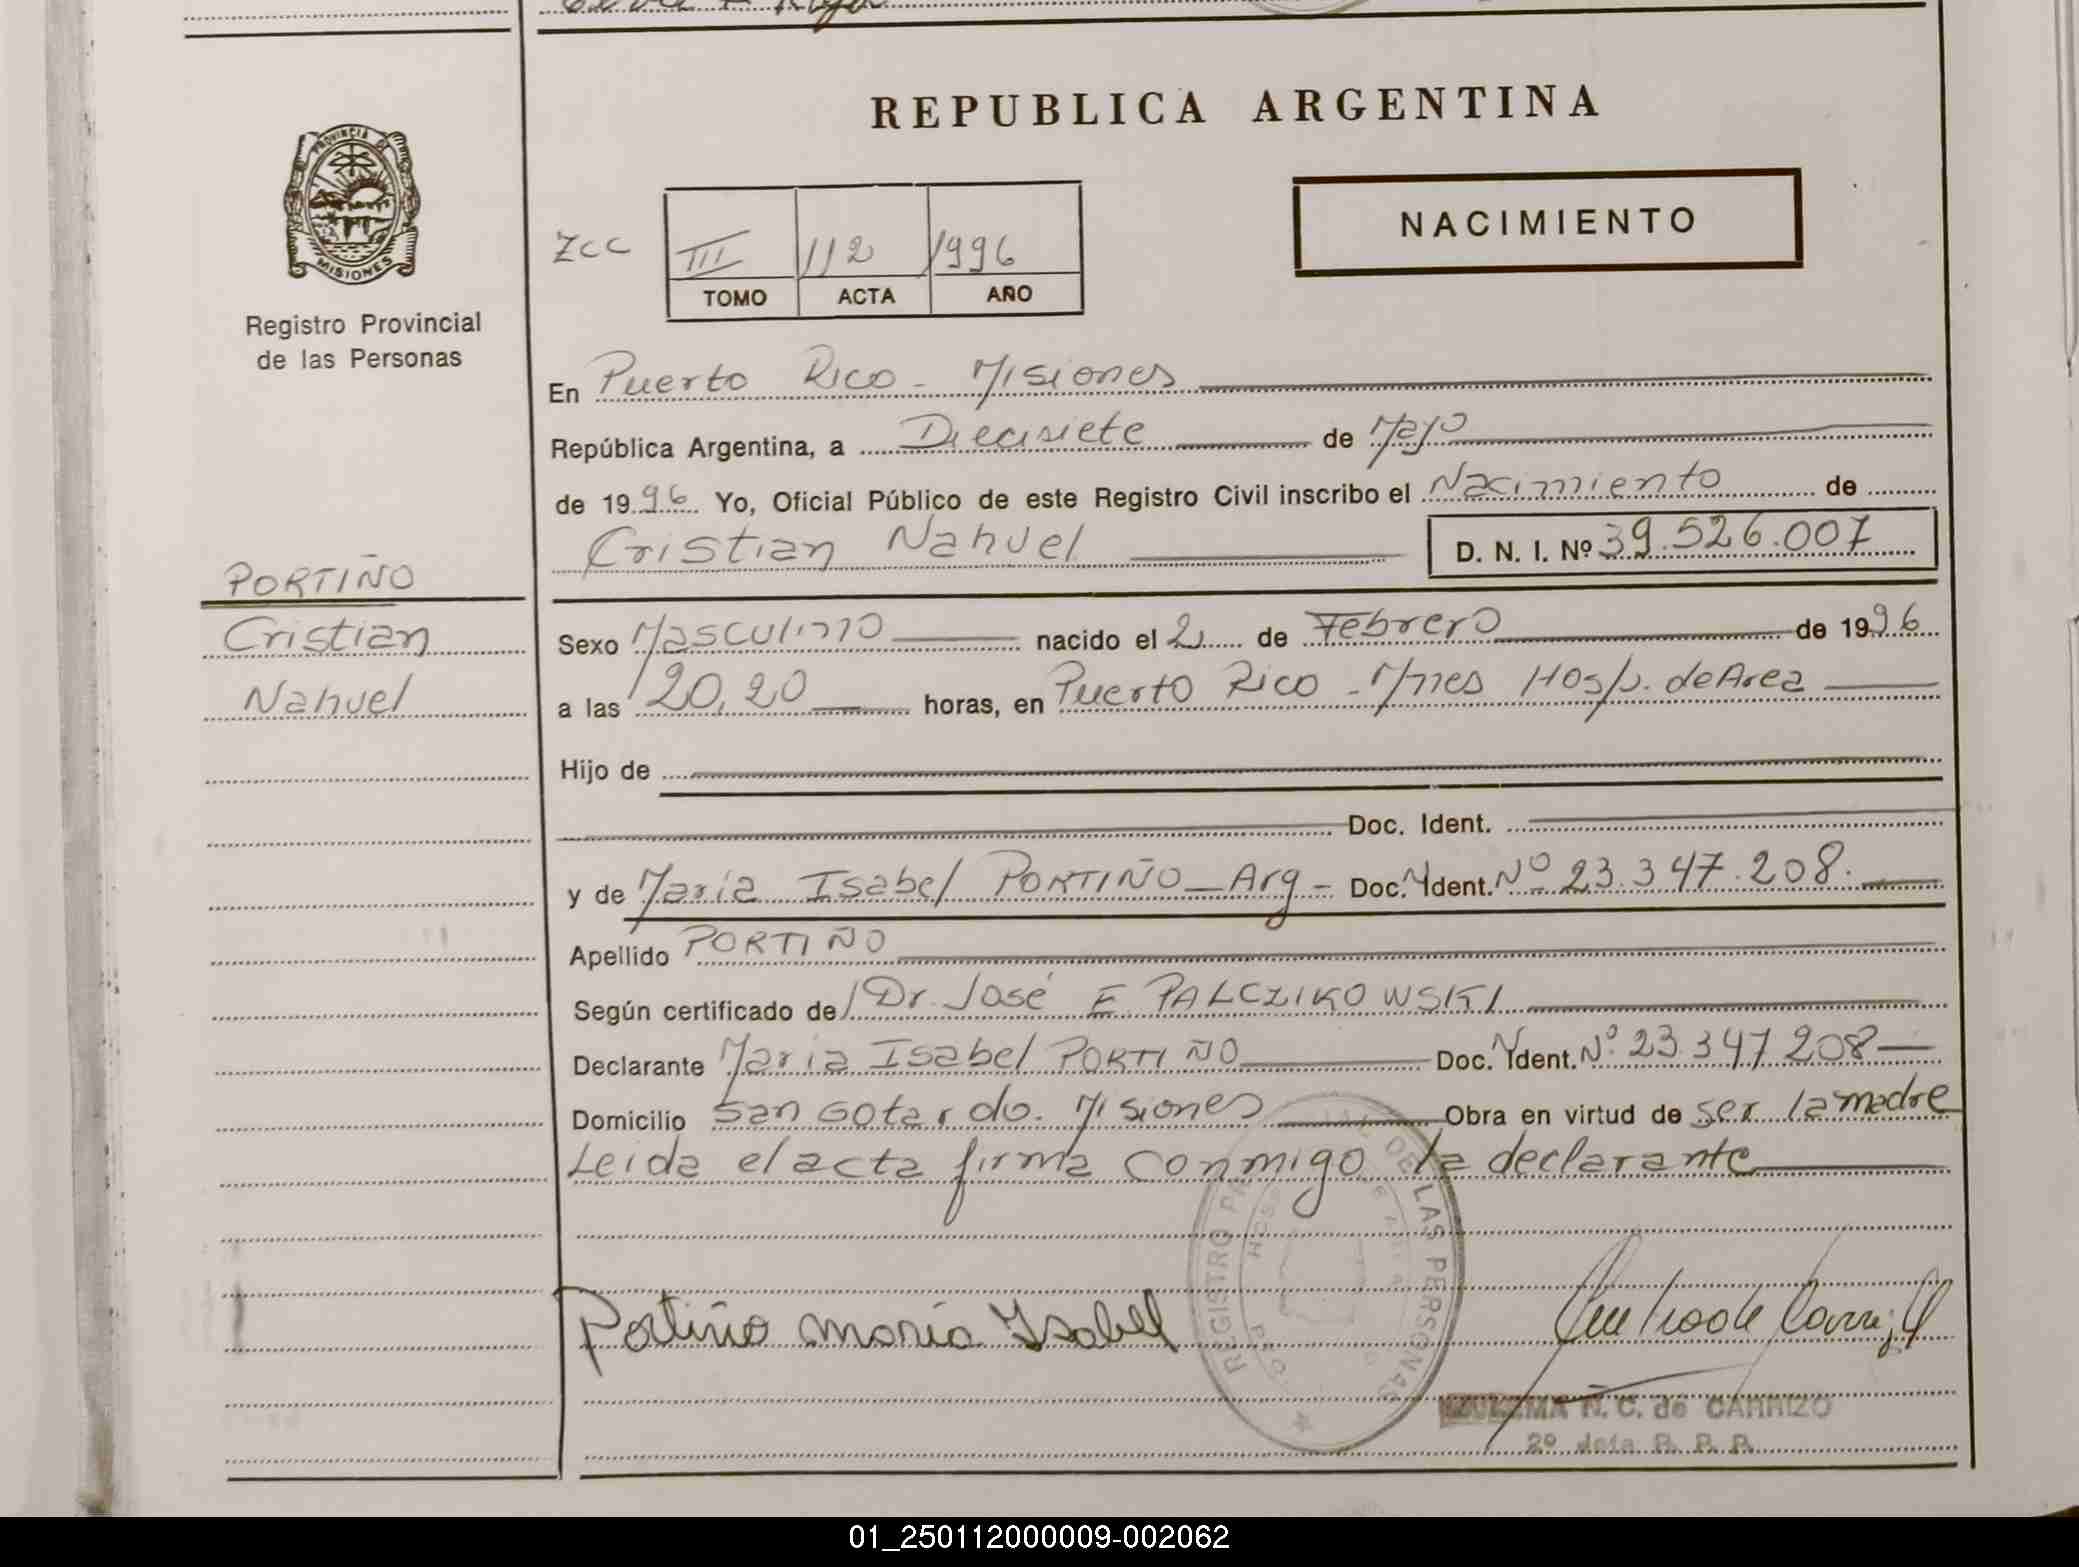 REPUBLICA ARGENTINA
PROVINCIA DE
MISIONES
Registro Provincial
de las Personas
NACIMIENTO
ZCC III 112 1996
TOMO ACTA AÑO
En Puerto Rico - Misiones
República Argentina, a Diecisiete de Mayo
de 1996 Yo, Oficial Público de este Registro Civil inscribo el Nacimiento de
Cristian Nahuel D. N. I. Nº 39.526.007
PORTIÑO
Cristian
Nahuel
Sexo Masculino nacido el 2 de Febrero de 1996
a las 20,20 horas, en Puerto Rico - Mnes Hosp. de Area
Hijo de
Doc. Ident.
y de Maria Isabel PORTIÑO - Arg - Doc. Ident. Nº 23.347.208.
Apellido PORTIÑO
Según certificado de Dr. José E. PALCZIKOWSKI
Declarante Maria Isabel PORTIÑO Doc. Ident. Nº 23.347.208
Domicilio San Gotardo. Misiones Obra en virtud de ser la madre
Leida el acta firma conmigo la declarante
Portiño maria Ysabel
REGISTRO DE LAS PERSONAS
N. C. de CARRIZO
2º Jefa R. P. P.
01_250112000009-002062